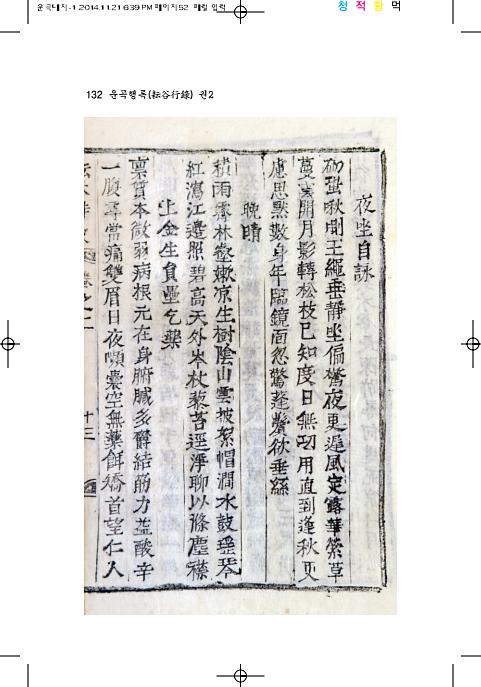 2014.11.21 6:39 PM 페이지52
청 적 황 먹
132 운곡행록(耘谷行錄) 권2
夜坐自詠
砌蛩啾喞玉繩垂靜坐偏驚夜更遲風定露華縈草
蔓雲開月影轉松枝已知度日無功用直到逢秋又
慮思默數身年臨鏡面忽驚蓬鬢欲垂絲
晩晴
積雨霽林壑嫩凉生樹陰山雲披絮帽澗水鼓瑤琴
紅瀉江邊照碧高天外岑杖藜苔逕淨聊以滌塵襟
上金生員壘乞藥
稟質本微弱病根元在身腑臟多鬱結筋力益酸辛
一腹尋常痛雙眉日夜嚬囊空無藥餌矯首望仁人
卷之二
十三